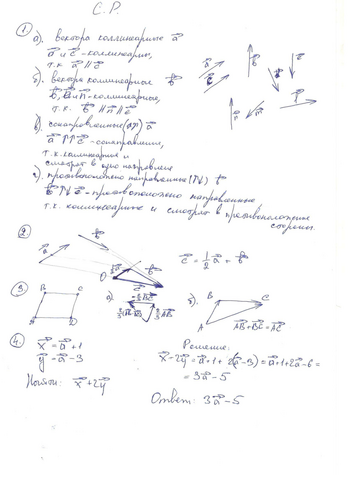 С.Р.
① а). вектора коллинеарные a⃗
a⃗ и c⃗ - коллинеарн,
т.к. a⃗ ∥ c⃗
б). вектора коллинеарные b⃗
- коллинеарные,
т.к. b⃗ ∥ n⃗ ∥ c⃗
в) сонаправленные (↑↑) a⃗
a⃗ ↑↑ c⃗ - сонаправлен,
т.к. коллинеарные и
смотрят в одно направление
г). противоположно направленные (↑↓) b⃗
b⃗ ↑↓ c⃗ - противоположно направленные
т.к. коллинеарные и смотрят в противоположные
стороны.
②
a⃗ b⃗
O ½a⃗ b⃗ c⃗
c⃗ = ½ a⃗ + b⃗
③ B C
A D
а).
б). B C
A
AB⃗ + BC⃗ = AC⃗
④. x⃗ = a⃗ + 1
y⃗ = a⃗ - 3
Найти: x⃗ + 2y⃗
Решение:
x⃗ - 2y⃗ = a⃗ + 1 + 2(a⃗ - 3) = a⃗ + 1 + 2a⃗ - 6 =
= 3a⃗ - 5
Ответ: 3a⃗ - 5